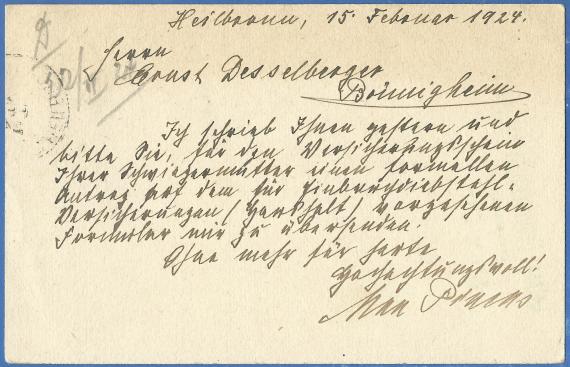 Heilbronn, 15. Februar 1924.
Herrn
Ernst Desselberger
Bönnigheim
Ich schrieb Ihnen gestern und
bitte Sie, für den Versicherungsschein
Ihrer Schwiegermutter einen formellen
Antrag auf dem für Einbruchdiebstahl-
Versicherungen (Haushalt) vorgesehenen
Formular mir zu übersenden.
Ohne mehr für heute
Hochachtungsvoll!
Max